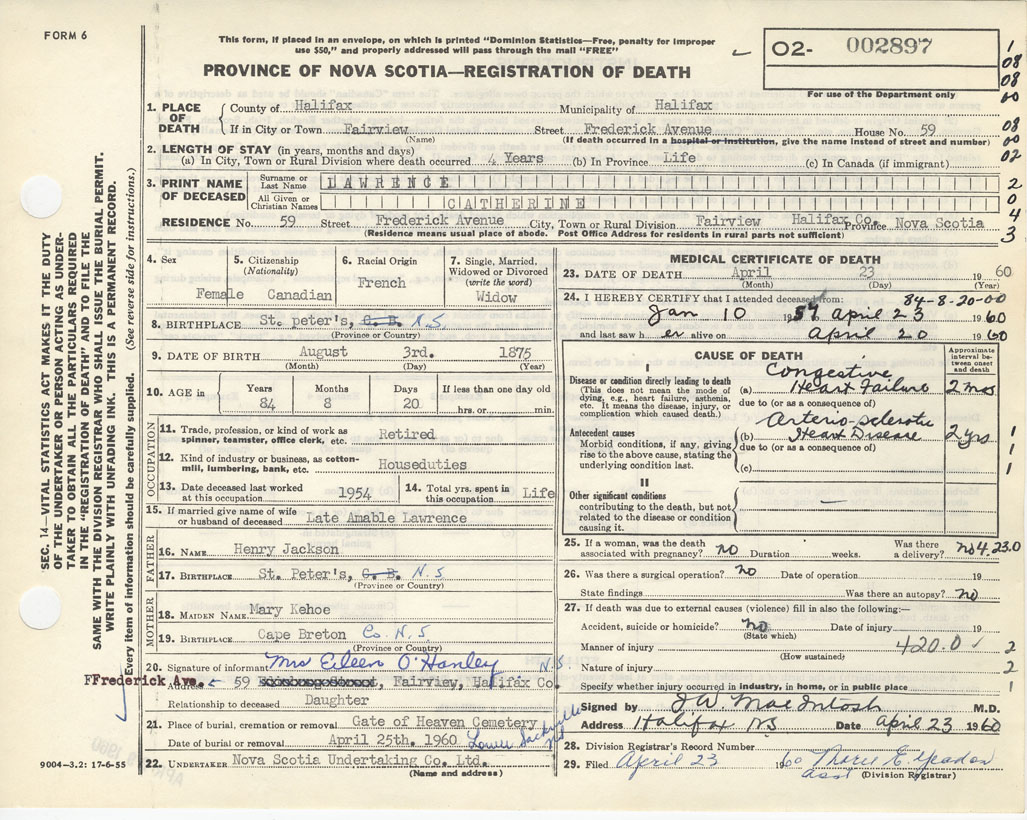 FORM 6
This form, if placed in an envelope, on which is printed "Dominion Statistics—Free, penalty for improper
use $50," and properly addressed will pass through the mail "FREE"
PROVINCE OF NOVA SCOTIA—REGISTRATION OF DEATH
02- 002897
For use of the Department only
1. PLACE OF DEATH
County of Halifax Municipality of Halifax
If in City or Town Fairview Street Frederick Avenue House No. 59
(Name) (If death occurred in a hospital or institution, give the name instead of street and number)
2. LENGTH OF STAY (in years, months and days)
(a) In City, Town or Rural Division where death occurred 4 Years (b) In Province Life (c) In Canada (if immigrant)
3. PRINT NAME OF DECEASED
Surname or Last Name LAWRENCE
All Given or Christian Names CATHERINE
RESIDENCE No. 59 Street Frederick Avenue City, Town or Rural Division Fairview Halifax Co. Province Nova Scotia
(Residence means usual place of abode. Post Office Address for residents in rural parts not sufficient)
1
08
08
00
08
00
02
2
0
4
3
4. Sex Female
5. Citizenship (Nationality) Canadian
6. Racial Origin French
7. Single, Married, Widowed or Divorced (write the word) Widow
8. BIRTHPLACE St. peter's, C. B. N.S
(Province or Country)
9. DATE OF BIRTH August 3rd. 1875
(Month) (Day) (Year)
10. AGE in Years 84 Months 8 Days 20 If less than one day old hrs. or min.
OCCUPATION
11. Trade, profession, or kind of work as spinner, teamster, office clerk, etc. Retired
12. Kind of industry or business, as cotton-mill, lumbering, bank, etc. Houseduties
13. Date deceased last worked at this occupation 1954
14. Total yrs. spent in this occupation Life
15. If married give name of wife or husband of deceased Late Amable Lawrence
FATHER
16. NAME Henry Jackson
17. BIRTHPLACE St. Peter's, C. B. N.S
(Province or Country)
MOTHER
18. MAIDEN NAME Mary Kehoe
19. BIRTHPLACE Cape Breton Co. N.S
(Province or Country)
20. Signature of informant Mrs Eileen O'Hanley N.S
FFrederick Ave. Address 59 , Fairview, Halifax Co.
Relationship to deceased Daughter
21. Place of burial, cremation or removal Gate of Heaven Cemetery
Date of burial or removal April 25th. 1960 Lower Sackville
22. UNDERTAKER Nova Scotia Undertaking Co. Ltd.
(Name and address)
MEDICAL CERTIFICATE OF DEATH
23. DATE OF DEATH April 23 1960
(Month) (Day) (Year)
24. I HEREBY CERTIFY that I attended deceased from: 84-8-20-00
Jan 10 1959 April 23 1960
and last saw her alive on April 20 1960
CAUSE OF DEATH
Approximate interval between onset and death
I
Disease or condition directly leading to death
(This does not mean the mode of dying, e.g., heart failure, asthenia, etc. It means the disease, injury, or complication which caused death.)
(a) Congestive Heart Failure 2 mos
due to (or as a consequence of)
Antecedent causes
Morbid conditions, if any, giving rise to the above cause, stating the underlying condition last.
(b) Arterio-sclerotic Heart Disease 2 yrs
due to (or as a consequence of)
(c)
1
1
1
II
Other significant conditions
contributing to the death, but not related to the disease or condition causing it.
—
25. If a woman, was the death associated with pregnancy? no Duration weeks. Was there a delivery? no 4.23.0
26. Was there a surgical operation? no Date of operation 19
State findings Was there an autopsy? no
27. If death was due to external causes (violence) fill in also the following:—
Accident, suicide or homicide? no Date of injury 19
(State which)
Manner of injury 420.0 2
(How sustained)
Nature of injury 2
Specify whether injury occurred in industry, in home, or in public place 1
Signed by J.W. MacIntosh M.D.
Address Halifax NS Date April 23 1960
28. Division Registrar's Record Number
29. Filed April 23 1960
asst (Division Registrar)
SEC. 14—VITAL STATISTICS ACT MAKES IT THE DUTY
OF THE UNDERTAKER OR PERSON ACTING AS UNDER-
TAKER TO OBTAIN ALL THE PARTICULARS REQUIRED
IN THE "REGISTRATION OF DEATH" AND TO FILE THE
SAME WITH THE DIVISION REGISTRAR WHO SHALL ISSUE THE BURIAL PERMIT.
WRITE PLAINLY WITH UNFADING INK. THIS IS A PERMANENT RECORD.
Every item of information should be carefully supplied. (See reverse side for instructions.)
9004—3.2: 17-6-55